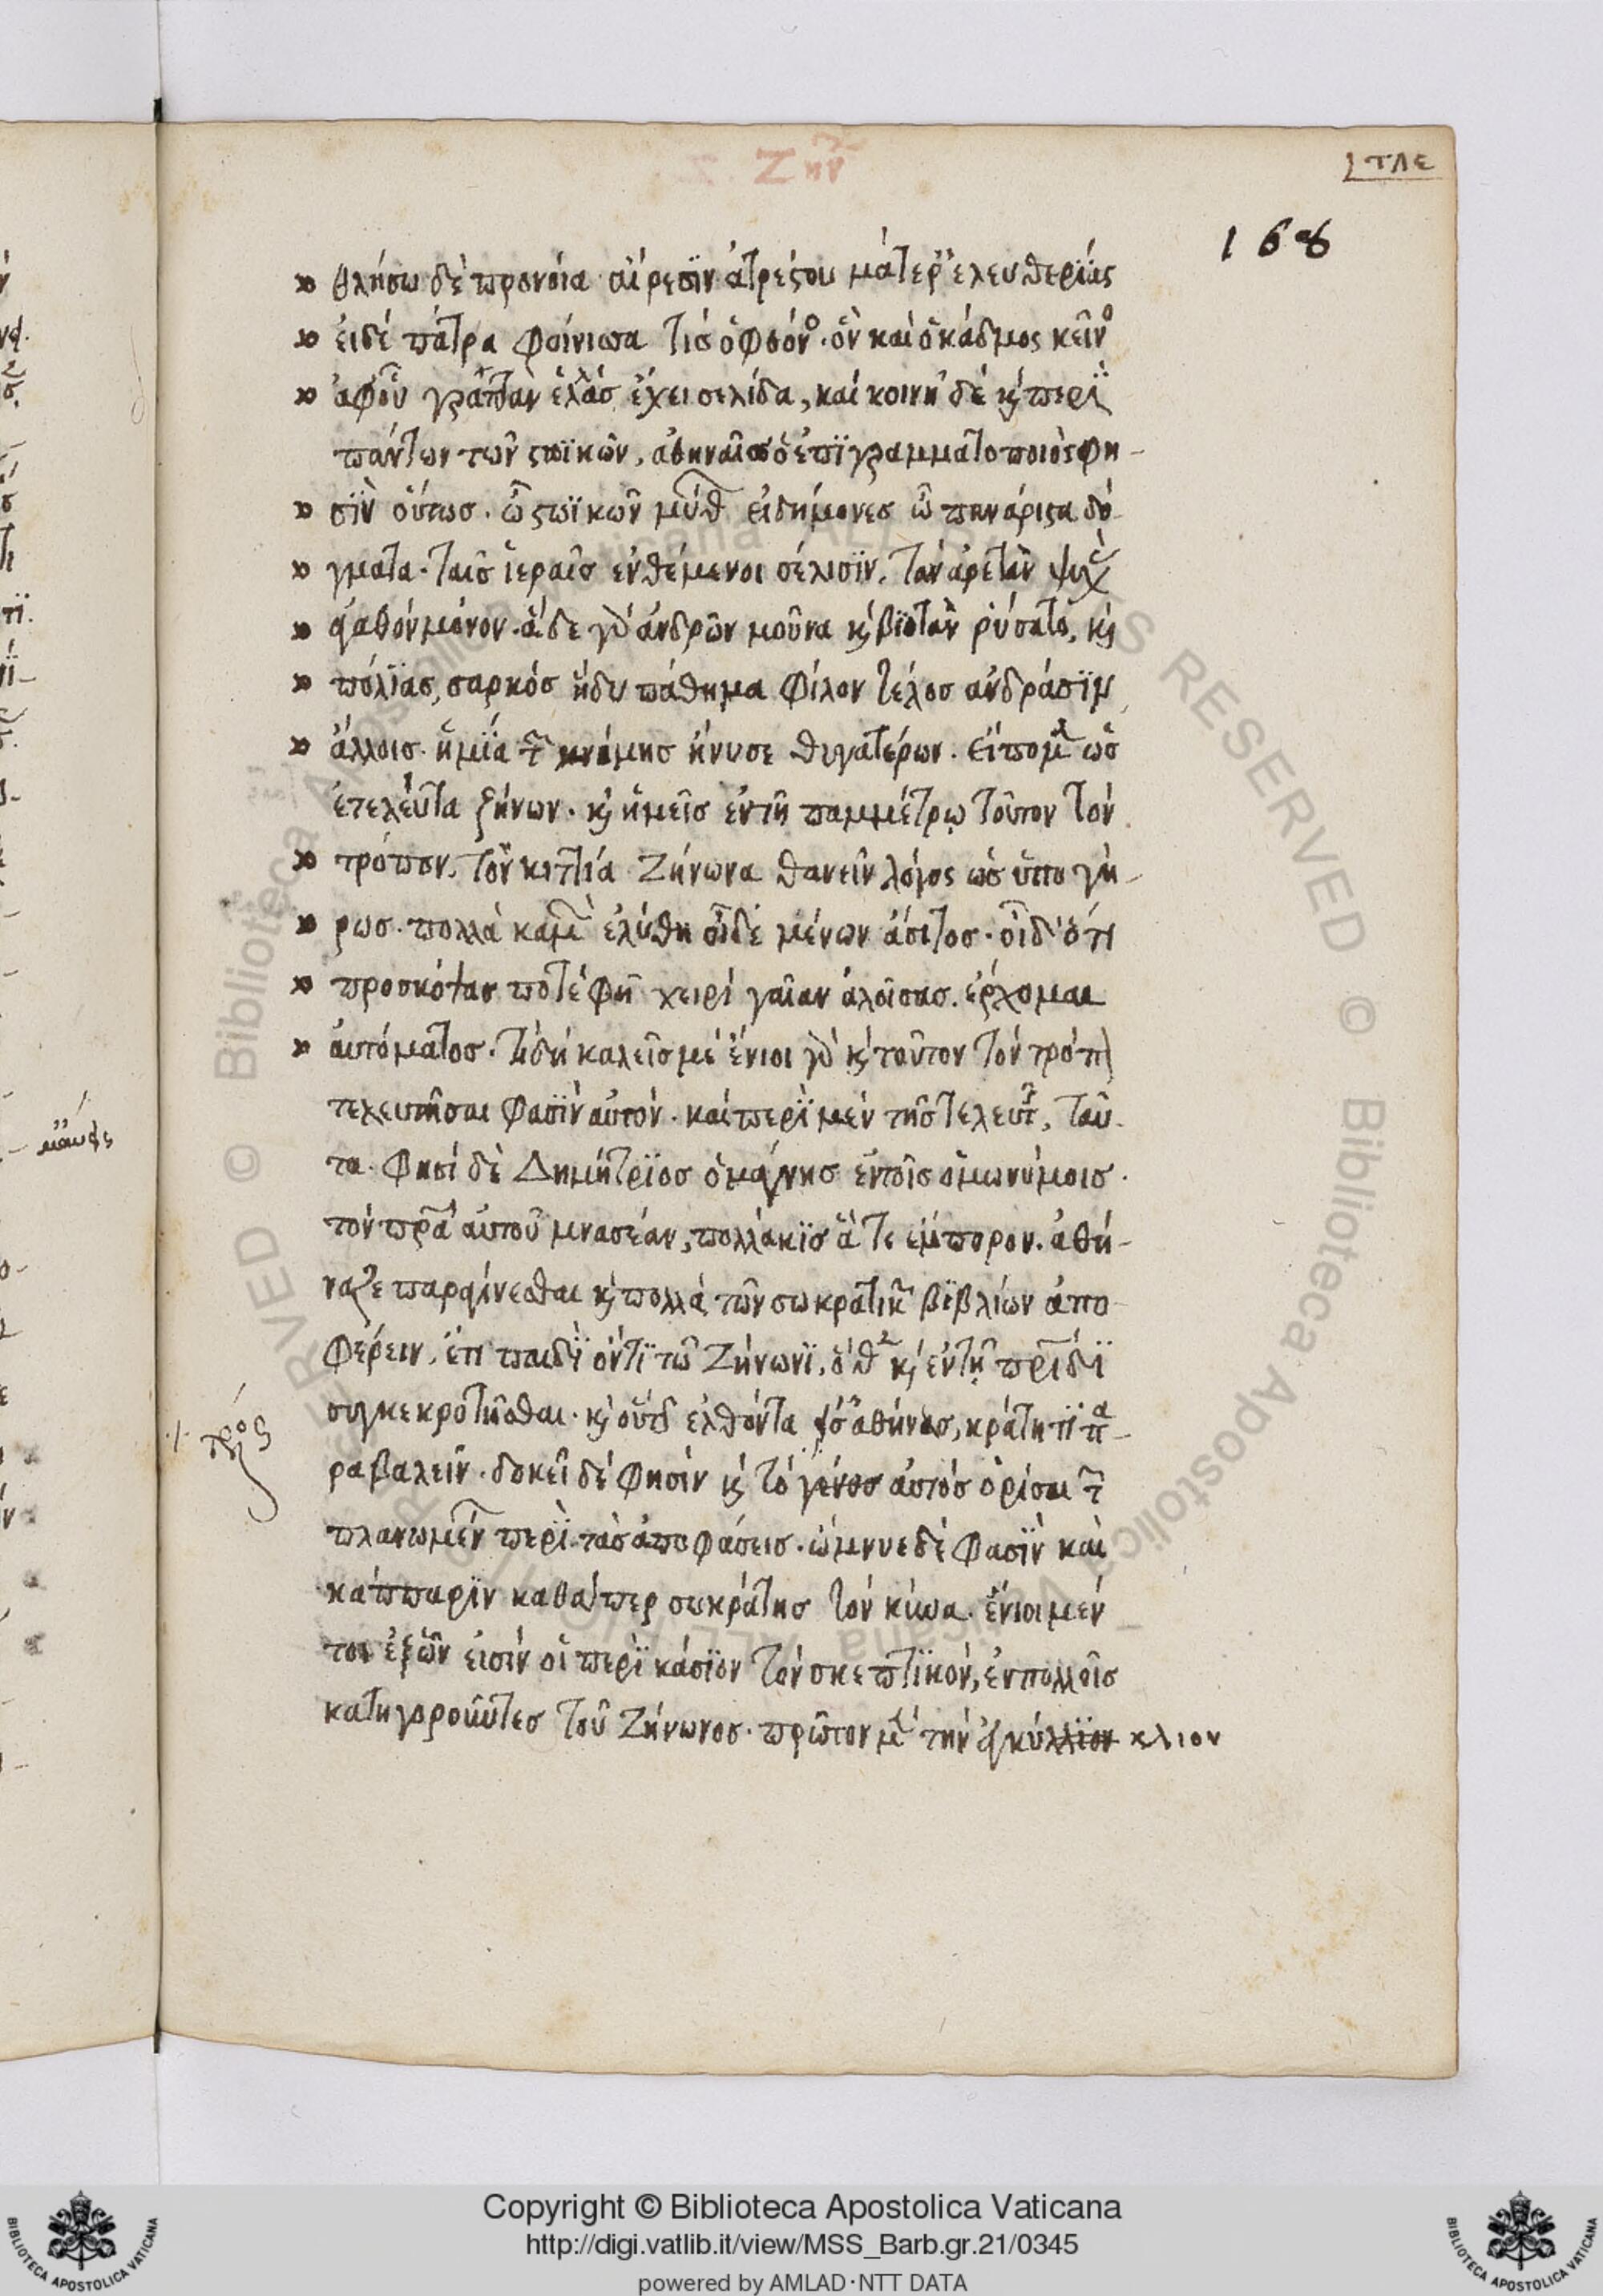 Ζήν
τλε
168
θλήσω δὲ προνοία αἵρεσϊν ἀτρέστου ματερ' ἐλευθερίας
εἰ δέ πάτρα φοίνισσα τίσ ὁ φθόνος. ὂν καὶ ὁ κάδμος κεῖνος
ἀφ' οὗ γραπτὰν ἑλλὰσ ἔχει σελίδα, καὶ κοινῆ δέ καὶ περὶ
πάντων τῶν στωϊκῶν, ἀθηναῖοσ ὁ ἐπϊγραμματοποιός φη-
σϊν οὕτωσ. ὦ στωϊκῶν μύθων εἰδήμονεσ ὦ πανάριστα δό-
γματα. ταῖσ ἱεραῖσ ἐνθέμενοι σέλισϊν. τὰν ἀρετὰν ψυχᾶς
ἀγαθόν μόνον. ἅδε γὰρ ἀνδρῶν μοῦνα καὶ βϊοτὰν ῥύσατο, καὶ
πόλϊας, σαρκόσ ἡδυπάθημα φίλον τέλοσ ἀνδράσϊν
ἄλλοισ. ἡ μΐα τῶν μνήμησ ἤνυσε θυγατέρων. εἴπομεν ὡσ
ἐτελεύτα ζήνων. καὶ ἡμεῖσ ἐν τῆ παμμέτρῳ τοῦτον τὸν
τρόπον. τὸν κιττϊά Ζήνωνα θανεῖν λόγος ὡσ ὑπο γή-
ρωσ. πολλὰ καμὼν ἐλύθη οἱ δὲ μένων ἄσιτοσ. οἱ δ' ὅτι
προσκόψασ ποτέ φῆ χειρί γαῖαν ἀλοίσασ. ἔρχομαι
αὐτόματοσ. τί δή καλεῖσ με ἔνιοι γὰρ καὶ τοῦτον τόν τρόπον
τελευτῆσαι φασΐν αὐτόν. καὶ περΐ μέν τῆσ τελευτῆς, ταῦ-
τα. φησί δὲ Δημήτρϊοσ ὁ μάγνησ ἐν τοῖσ ὁμωνύμοισ.
τόν πατέρα αὐτοῦ μνασέαν, πολλάκϊσ ἅτε ἔμπορον. ἀθή-
ναζε παραγίνεσθαι καὶ πολλά τῶν σωκρατικῶν βϊβλίων ἀπο-
φέρειν, ἔτι παιδΐ ὄντϊ τῶ Ζήνωνϊ, ὅθεν καὶ ἐν τῆ πατρίδϊ
συγκεκροτῆσθαι. καὶ οὕτως ἐλθόντα εἰσ ἀθήνασ, κράτητϊ πα-
πρός
ραβαλεῖν. δοκεῖ δέ φησίν καὶ τό γένοσ αὐτόσ ὁρίσαι τῶν
πλανωμένων περΐ τάσ ἀποφάσεισ. ὤμνυε δὲ φασΐν καὶ
κάππαρϊν καθάπερ σωκράτησ τόν κύνα. ἔνιοι μέν
τοι ἐξ ὧν εἰσίν οἱ περΐ κάσϊον τόν σκεπτϊκόν, ἐν πολλοῖσ
κατηγοροῦντεσ τοῦ Ζήνωνοσ. πρῶτον μέν τήν ἐγκύλλϊον κλιον
Copyright © Biblioteca Apostolica Vaticana
http://digi.vatlib.it/view/MSS_Barb.gr.21/0345
powered by AMLAD·NTT DATA